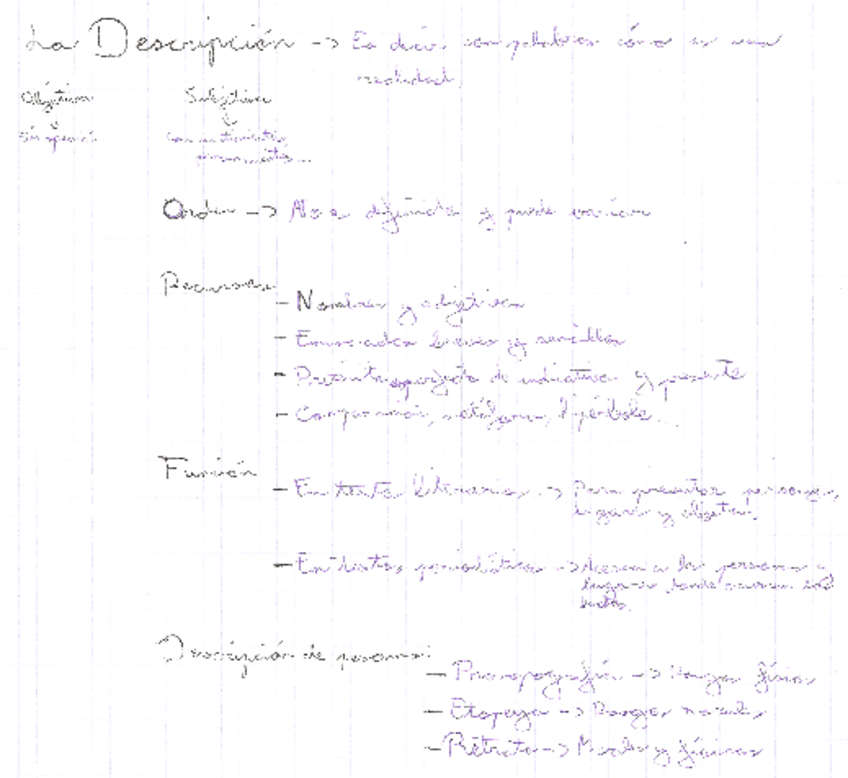 La Descripción -> Es decir con palabras cómo es una
realidad.
Objetiva Subjetiva
Sin opinión Con sentimientos,
pensamientos...
Orden -> No es definido y puede variar
Recursos
- Nombres y adjetivos
- Enunciados breves y sencillos
- Pretérito imperfecto de indicativo y presente
- Comparación, metáfora, hipérbole...
Función
- En textos literarios -> Para presentar personajes,
lugares y objetos.
- En textos periodísticos -> Acercan a las personas y
lugares donde ocurren los
hechos.
Descripción de personas:
- Prosopografía -> Rasgos físicos
- Etopeya -> Rasgos morales
- Retrato -> Morales y físicos